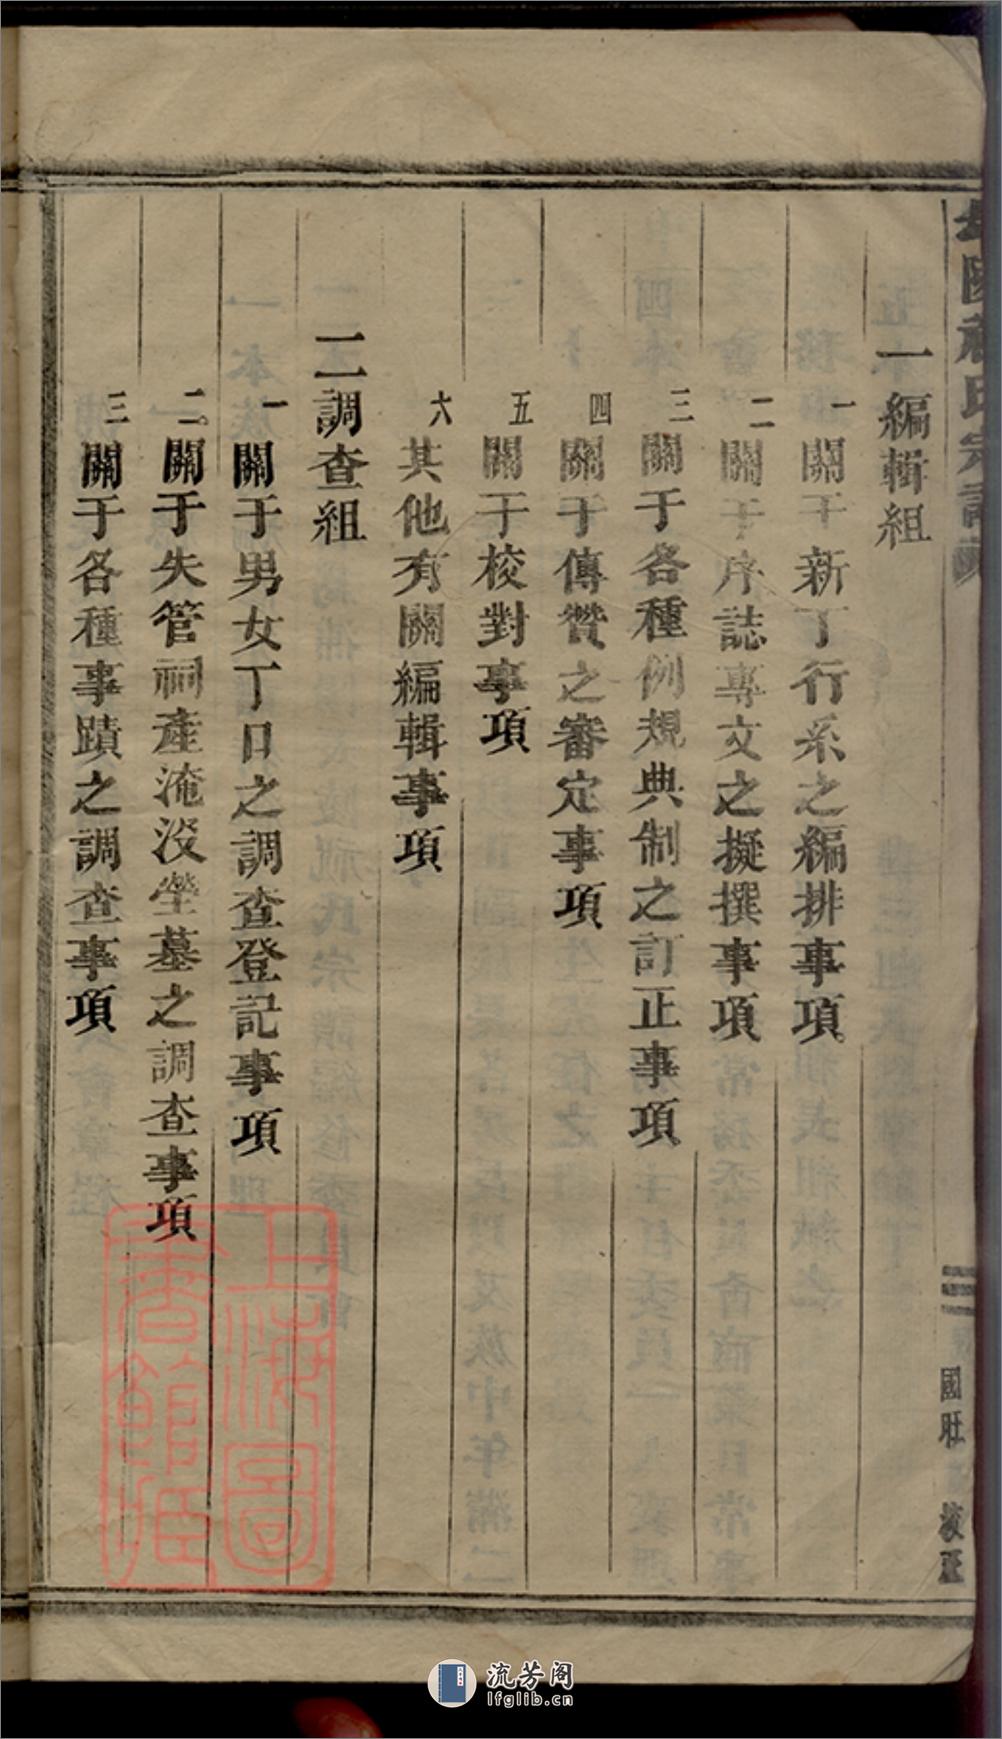 一編輯組
一關于新丁行系之編排事項
二關于序誌專文之擬撰事項
三關于各種例規典制之訂正事項
四關于傳贊之審定事項
五關于校對事項
六其他有關編輯事項
二調查組
一關于男女丁口之調查登記事項
二關于失管祠產淹沒塋墓之調查事項
三關于各種事蹟之調查事項
國旺 校正
上海圖
書館藏
流芳阁
lfglib.cn